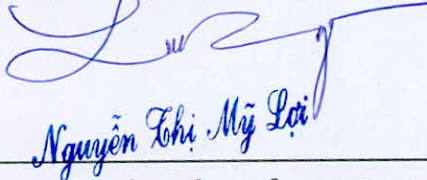 Nguyễn Thị Mỹ Lợi